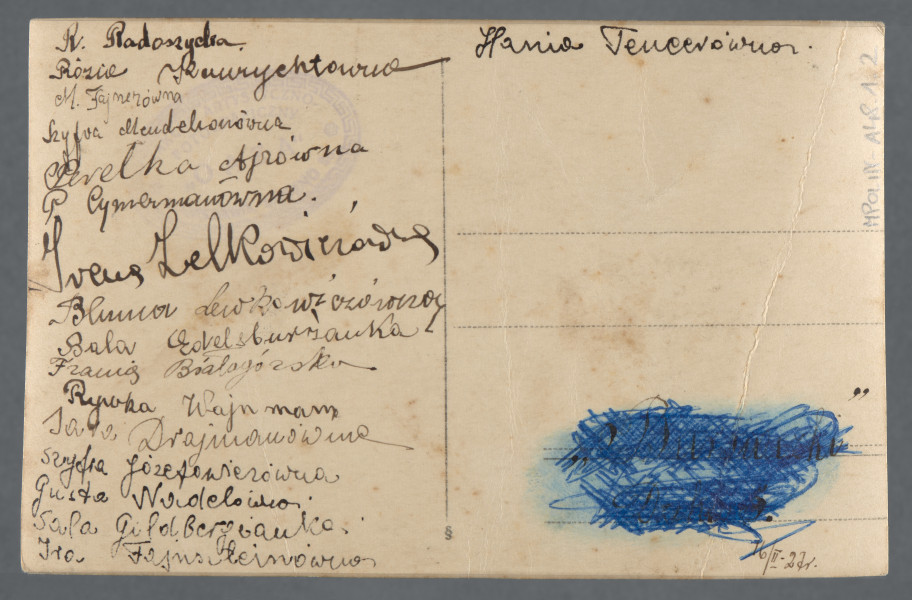 R. Radoszycka.
Rózia Raurychtówna
M. Fajnerówna
Szyfra Mendelsonówna
Perelka Ajzówna
P Cymermanówna.
Irena Zelkowiczówna
Bluma Lewkowiczówna
Bala Edelsburżanka
Frania Białogórska
Rywka Wajnman
Sara Drajmanówna
Szyfra Józefowiczówna
Gusta Wadelówna.
Sala Goldbergżanka.
Ira Fajnszteinówna
Hania Tencerówna.
MPOLIN-A48.1.2
§
16/II-27r.